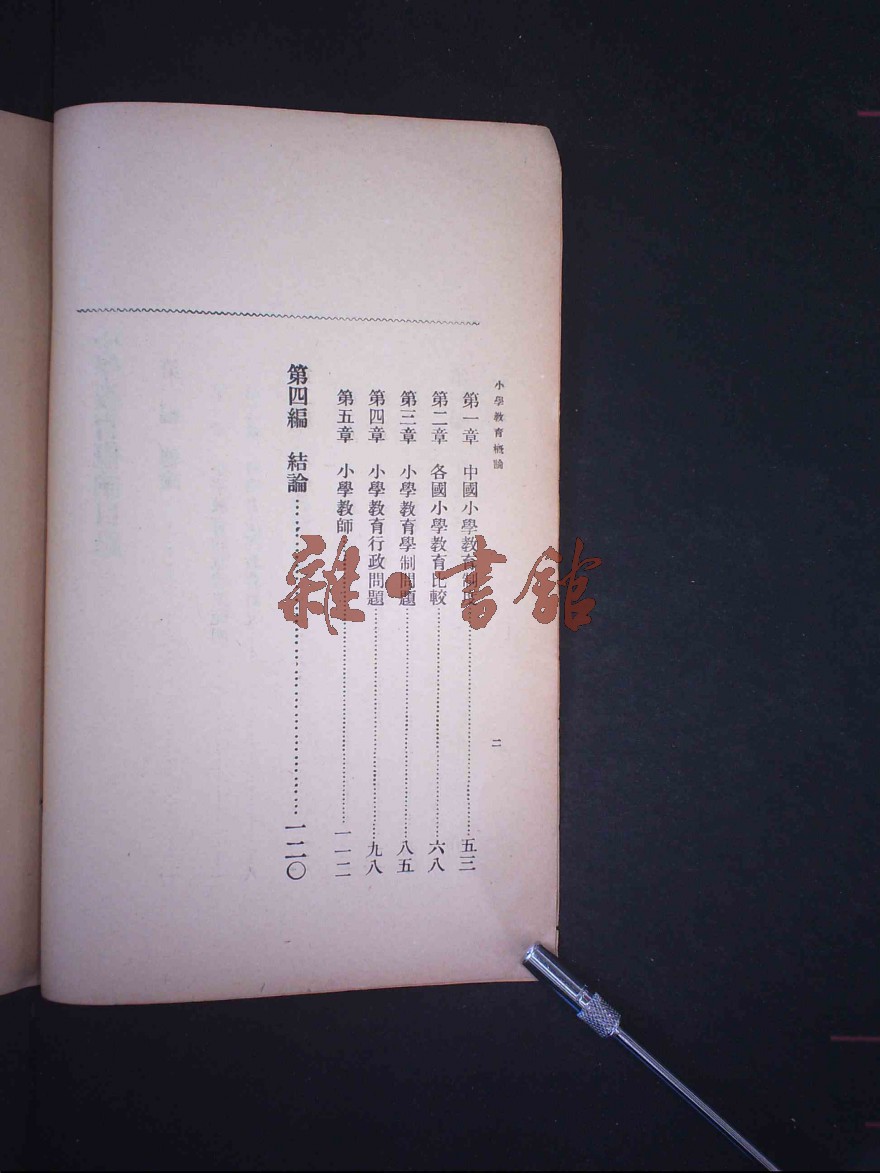 小學教育概論
二
第一章 中國小學教育制度……五三
第二章 各國小學教育比較……六八
第三章 小學教育學制問題……八五
第四章 小學教育行政問題……九八
第五章 小學教師……一一二
第四編 結論……一二〇
雜·書館